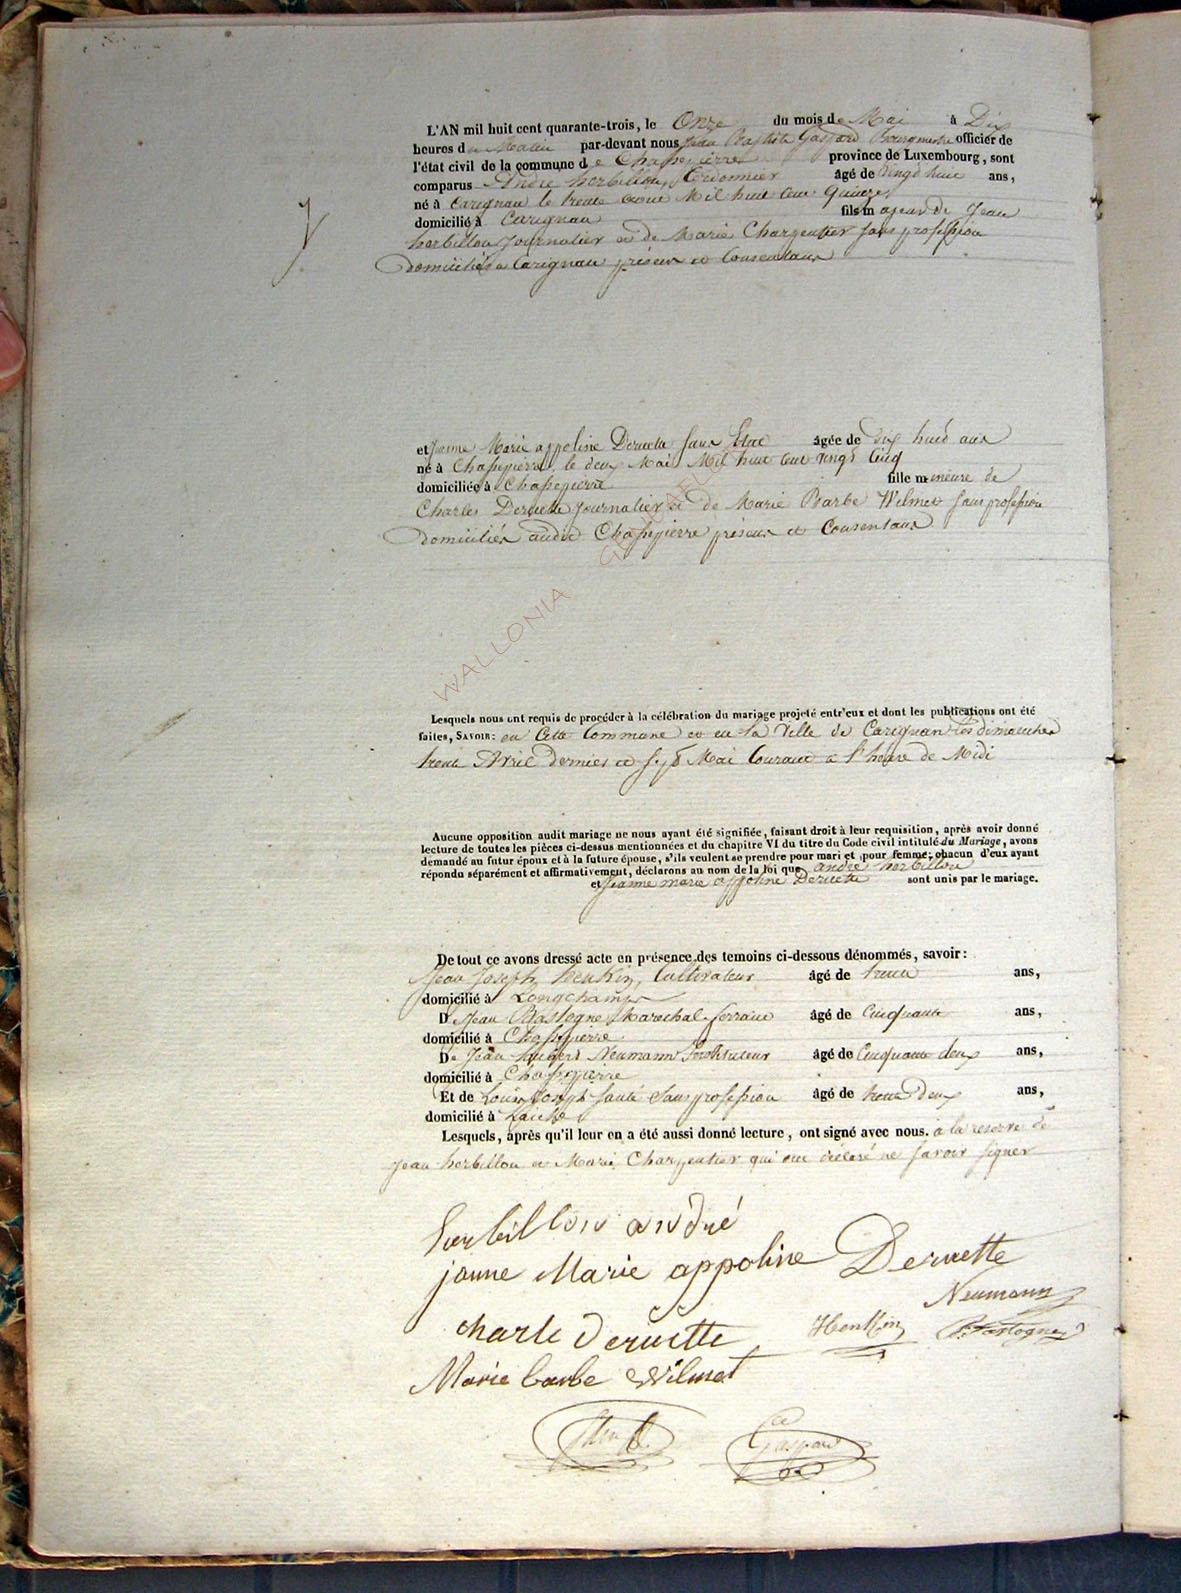 L'AN mil huit cent quarante-trois, le Onze du mois de Mai à Dix
heures du Matin par-devant nous Jean Baptiste Gaspard Bourgmestre officier de
l'état civil de la commune de Chassepierre province de Luxembourg, sont
comparus André herbillon, Cordonnier âgé de Vingt huit ans,
né à Carignan le trente aout Mil huit cent quinze,
domicilié à Carignan fils majeur de Jean
herbillon Journalier et de Marie Charpentier sans profession
domiciliés a Carignan présens et Consentans
et Jeanne Marie appoline Deruette sans Etat âgée de dix huit ans
né à Chassepierre, le deux Mai Mil huit cent vingt Cinq
domiciliée à Chassepierre fille mineure de
Charles Deruette Journalier et de Marie Barbe Wilmet sans profession
domiciliés audit Chassepierre présens et Consentans
WALLONIA
Lesquels nous ont requis de procéder à la célébration du mariage projeté entr'eux et dont les publications ont été
faites, SAVOIR: en Cette Commune et en la Ville de Carignan les dimanches
trente Avril dernier et sept Mai Courant a l'heure de Midi
Aucune opposition audit mariage ne nous ayant été signifiée, faisant droit à leur requisition, après avoir donné
lecture de toutes les pièces ci-dessus mentionnées et du chapitre VI du titre du Code civil intitulé du Mariage, avons
demandé au futur époux et à la future épouse, s'ils veulent se prendre pour mari et pour femme; chacun d'eux ayant
répondu séparément et affirmativement, déclarons au nom de la loi que andré herbillon
et Jeanne marie appoline Deruette sont unis par le mariage.
De tout ce avons dressé acte en présence des temoins ci-dessous dénommés, savoir:
Jean Joseph henkin, Cultivateur âgé de trente ans,
domicilié à Longchamps
De Jean Bastogne Marechal ferrant âgé de Cinquante ans,
domicilié à Chassepierre
De Jean hubert Neumann Instituteur âgé de Cinquante deux ans,
domicilié à Chassepierre
Et de Louis Joseph sans profession âgé de trente Deux ans,
domicilié à Laiche
Lesquels, après qu'il leur en a été aussi donné lecture, ont signé avec nous. a la reserve de
Jean herbillon et Marie Charpentier qui ont déclaré ne savoir signer
herbillon andré
janne Marie appoline Deruette
Neumann
charle deruette Henkin Bastogne
Marie barbe Wilmet
Gaspard